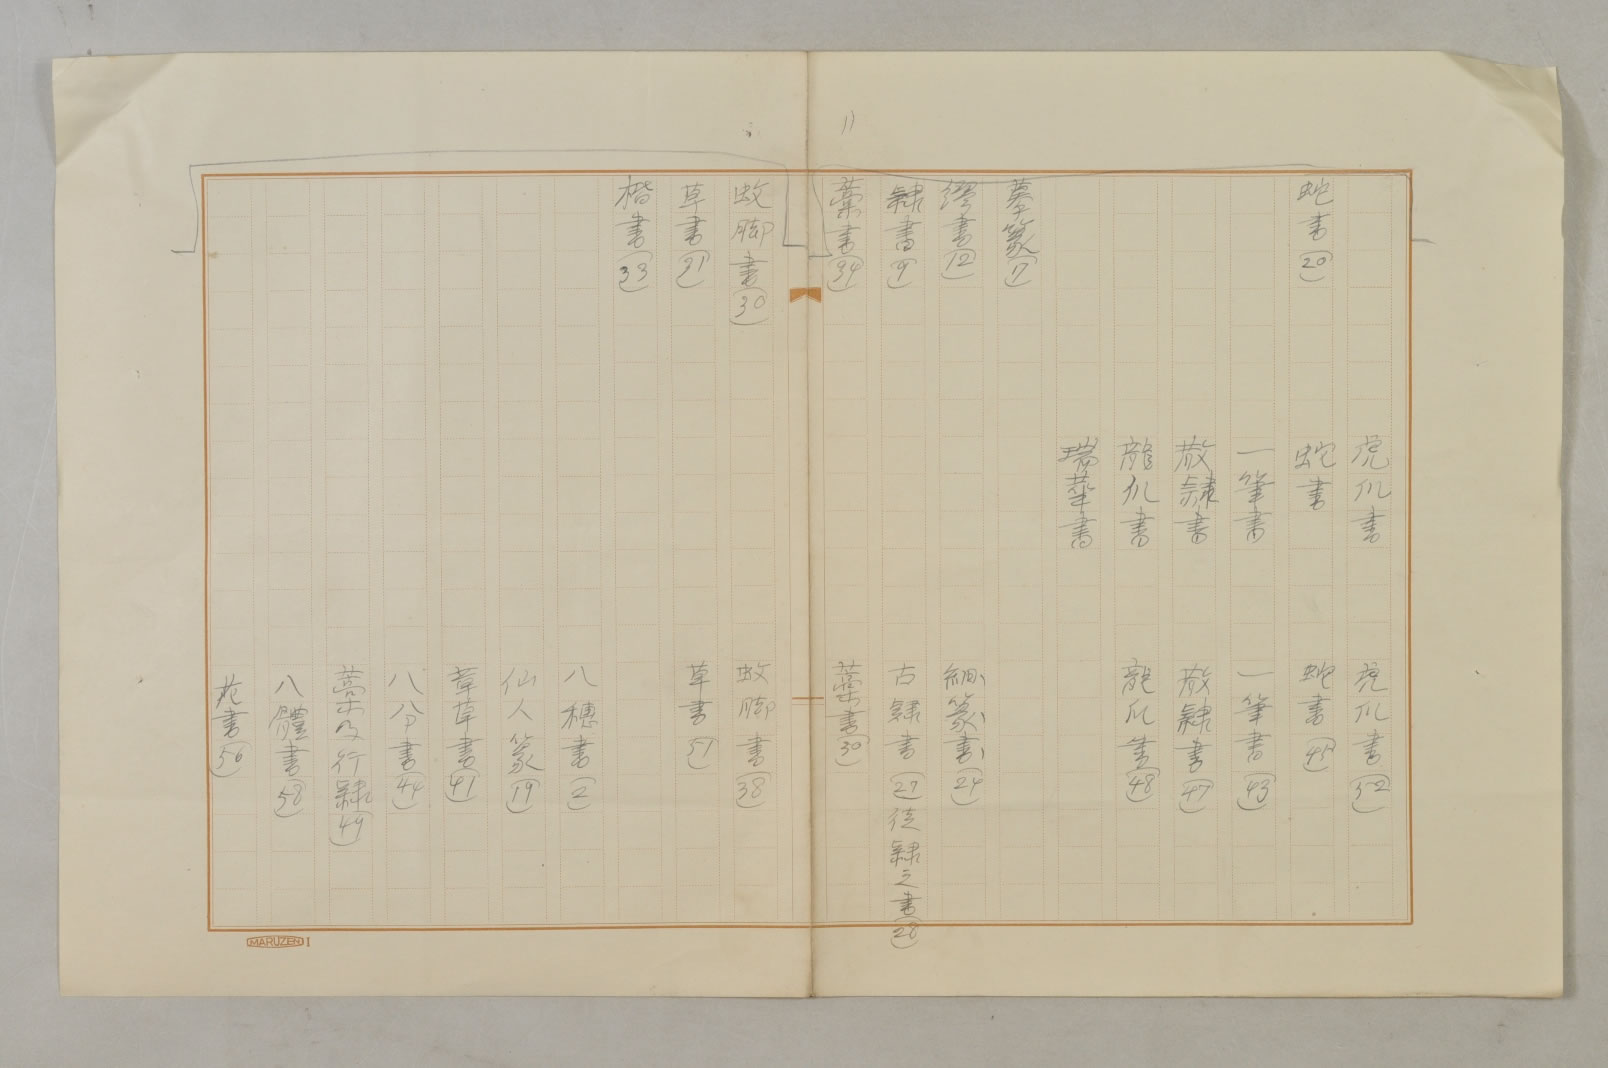 虎爪書
虎爪書(52)
蛇書(20)
蛇書
蛇書(45)
一筆書
一筆書(43)
散隷書
散隷書(47)
龍爪書
龍爪書(48)
瑞華書
摹篆(17)
繆書(12)
細篆書(24)
隷書(9)
古隷書(27)
徒隷之書(28)
藁書(34)
藁書(30)
蚊脚書(30)
蚊脚書(38)
草書(31)
草書(51)
楷書(33)
八穗書(2)
仙人篆(19)
章草書(41)
八分書(44)
藁及行隷(49)
八體書(58)
花書(56)
MARUZEN I